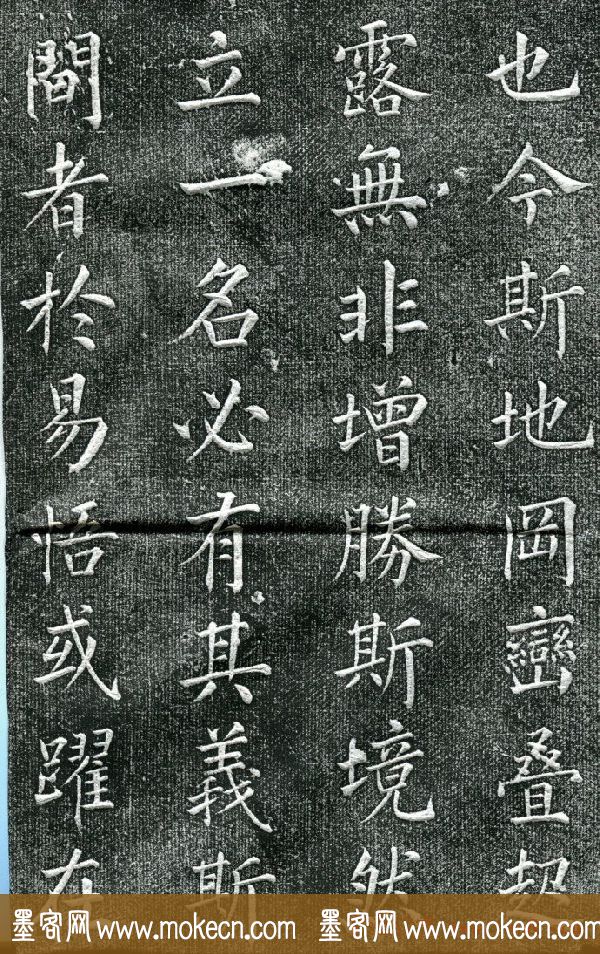 也今斯地岡巒疊起
露無非增勝斯境然
立一名必有其義斯
閒者於易悟或躍在
墨客网 www.mokecn.com 墨客网 www.mokecn.com